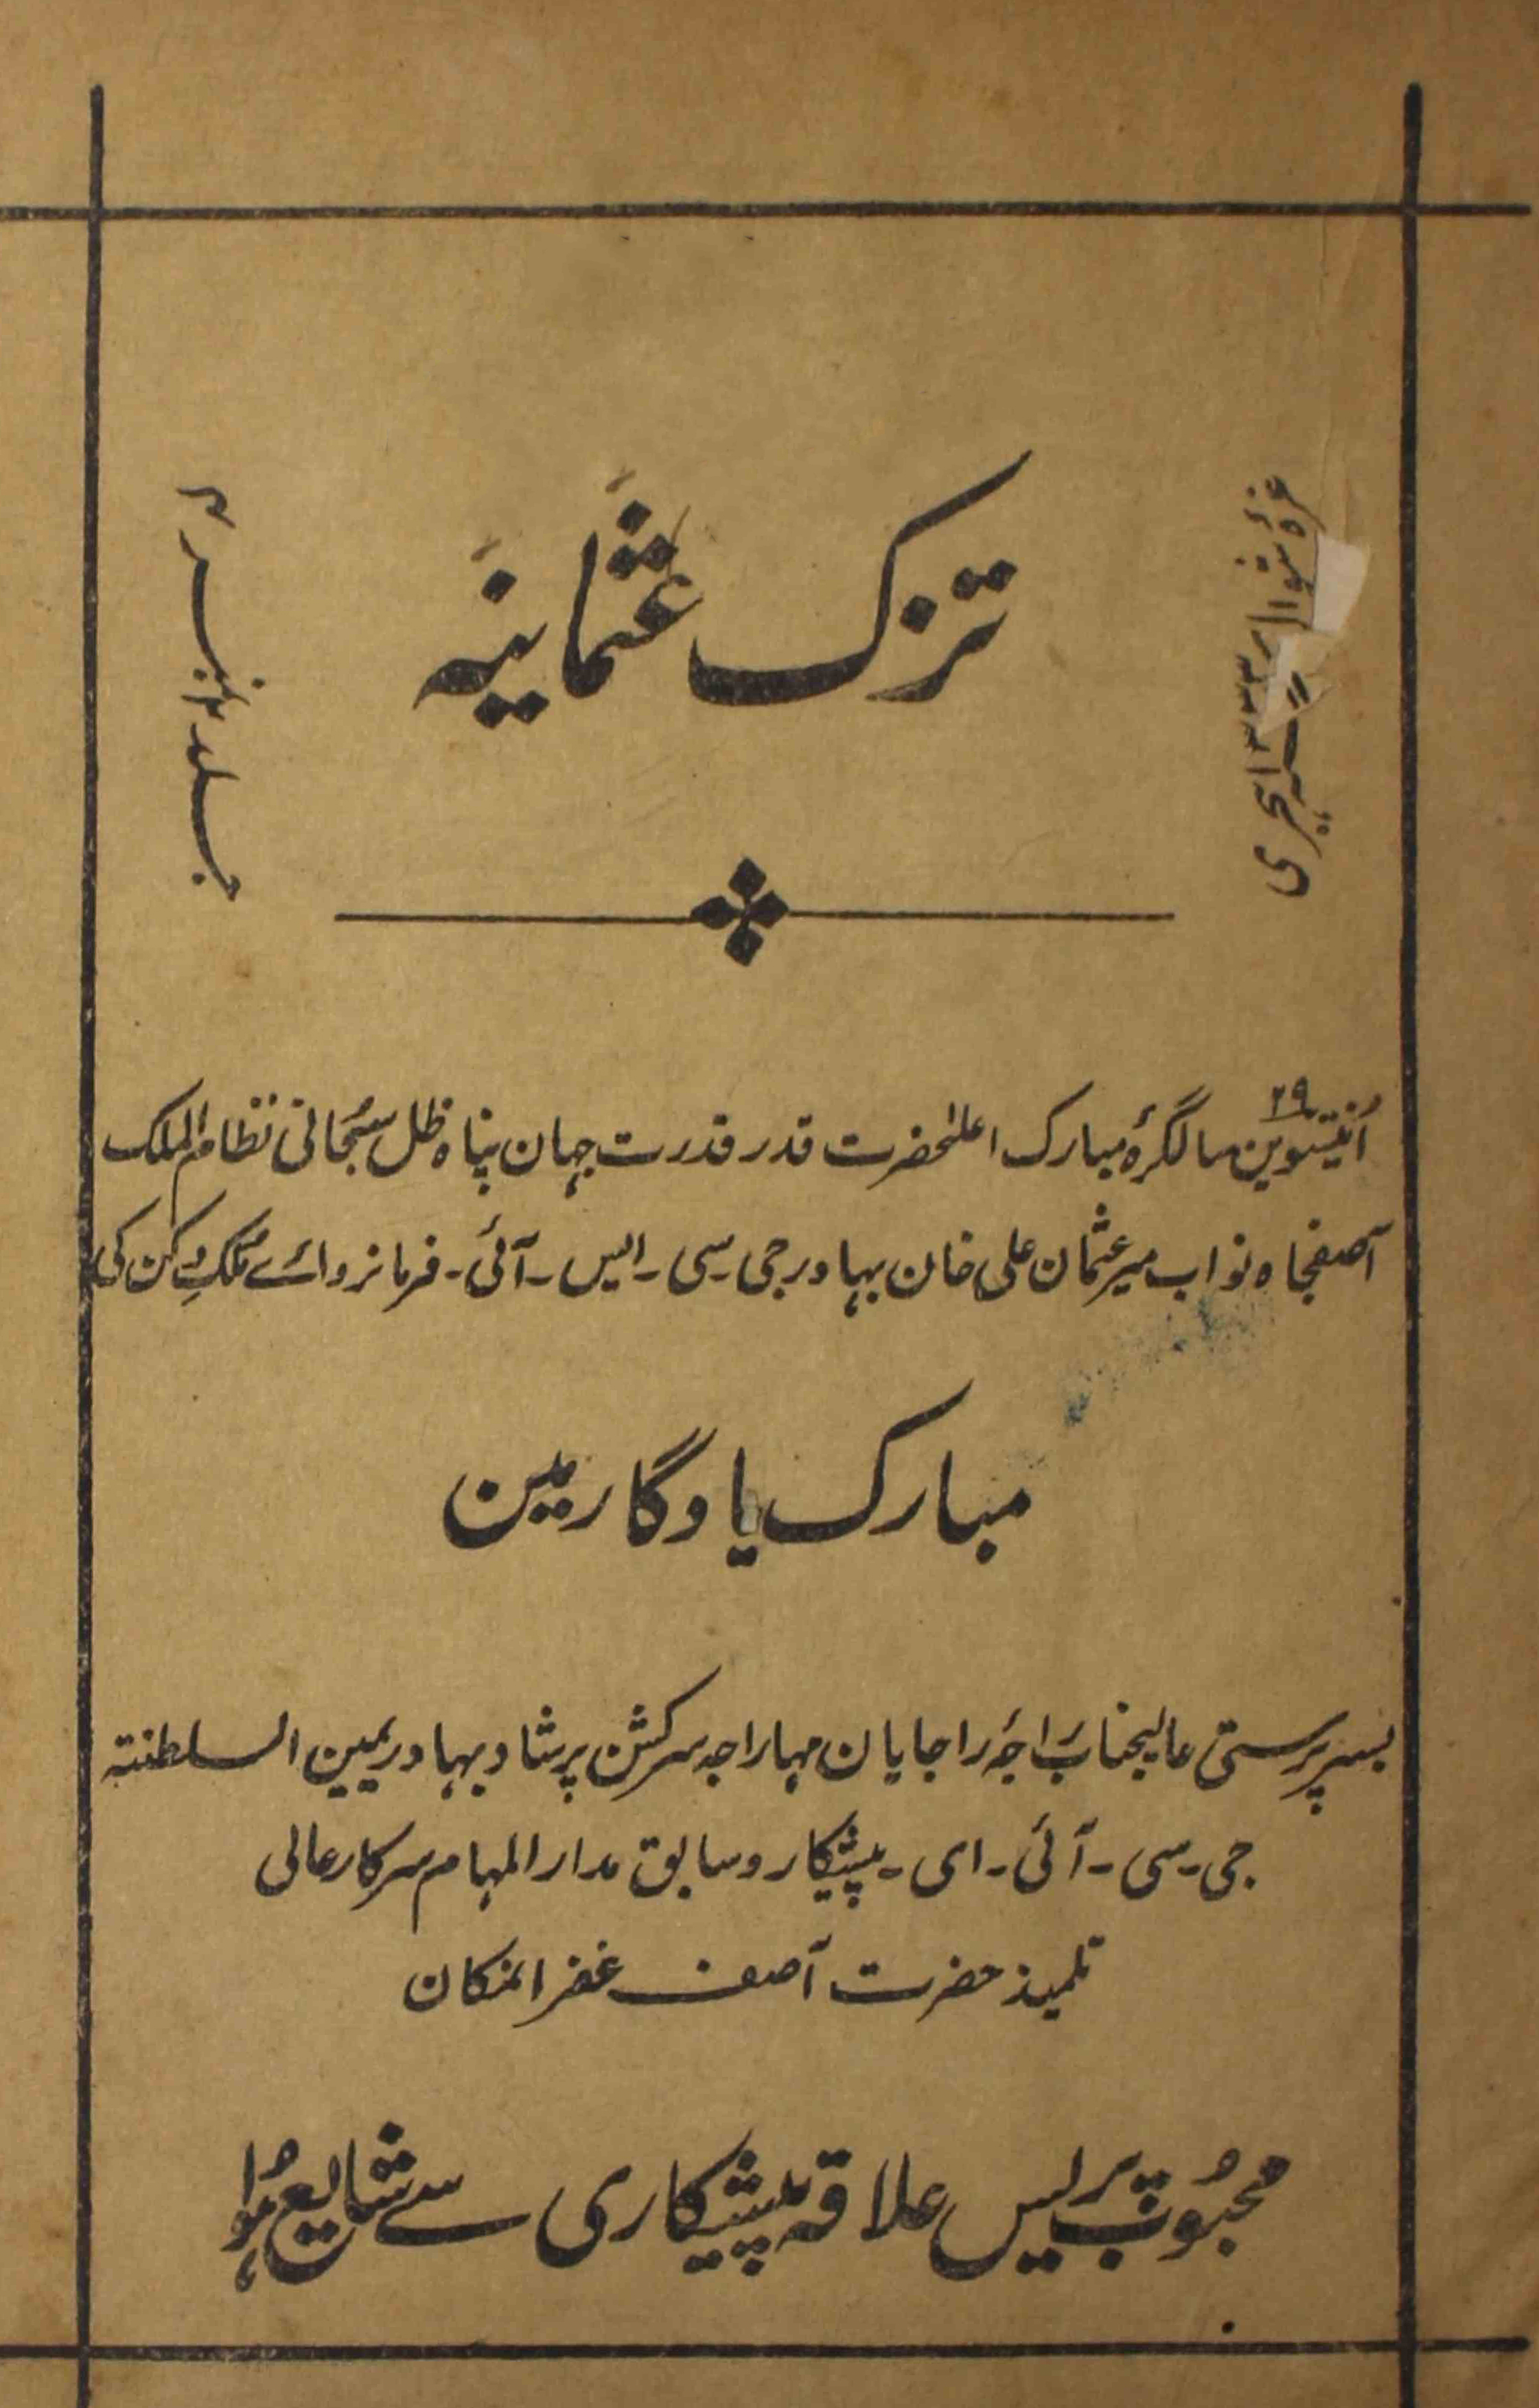 غرۂ شوال سنہ ۱۳۳۲ ہجری
تزک عثمانیہ
جلد ۲ نمبر ۳
اُنتیسوین ۲۹ سالگرۂ مبارک اعلٰحضرت قدر قدرت جہان پناہ ظل سُبحانی نظام الملک
آصفجاہ نواب میر عثمان علی خان بہادر جی۔سی۔ایس۔آئی۔ فرمانروائے مُلکِ دکن کی
مبارک یادگار مین
بسرپرستی عالیجناب راجۂ راجایان مہاراجہ سر کشن پرشاد بہادر یمین السلطنتہ
جی۔سی۔آئی۔ای۔پیشکار و سابق مدار المہام سرکار عالی
تلمیذ حضرت آصف غفرالمکان
محبُوب پریس علاقہ پیشکاری سے شایع ہُوا